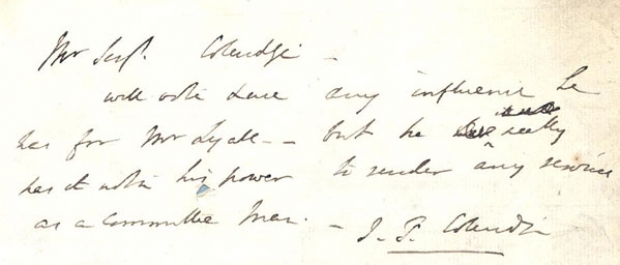 Mr Serjt. Coleridge –
will use any influence he
has for Mr Lyall – but he really
has it not in his power to render any service
as a Committee Man. –
J. T. Coleridge